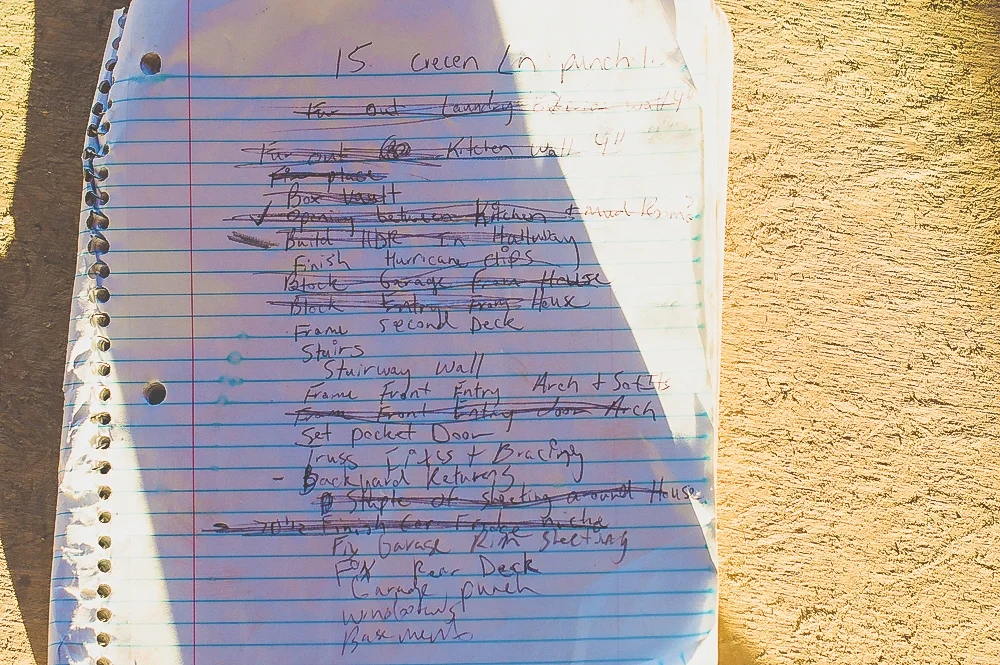 15. crecen Ln punch
Fur out Laundry Exterior wall 4"
Fur out Kitchen wall 4"
Fire place
Box Vault
✓ Opening between Kitchen + mud Room?
Build in Hallway
Finish Hurricane clips
Block Garage From House
Block Entry From House
Frame second Deck
Stairs
Stairway Wall
Frame Front Entry Arch + Soffits
Frame Front Entry door Arch
Set pocket Door
Truss Fixes + Bracing
- Backyard Returns
Staple of sheeting around House
- 70½ Finish For Fridge niche
Fix Garage Rim Sheeting
Fix Rear Deck
Garage punch
windows
Basement